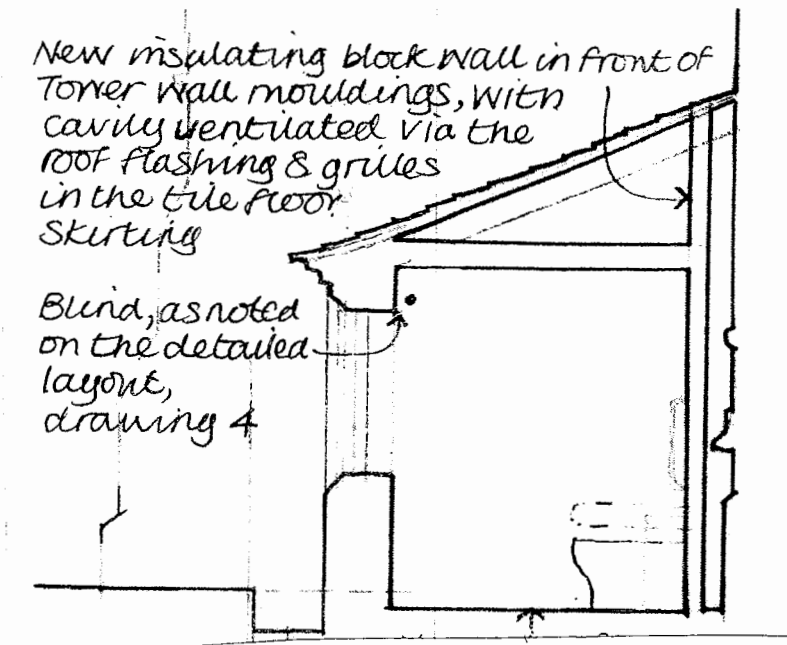 New insulating block wall in front of
Tower wall mouldings, with
cavity ventilated via the
roof flashing & grilles
in the tile floor
Skirting
Blind, as noted
on the detailed
layout,
drawing 4